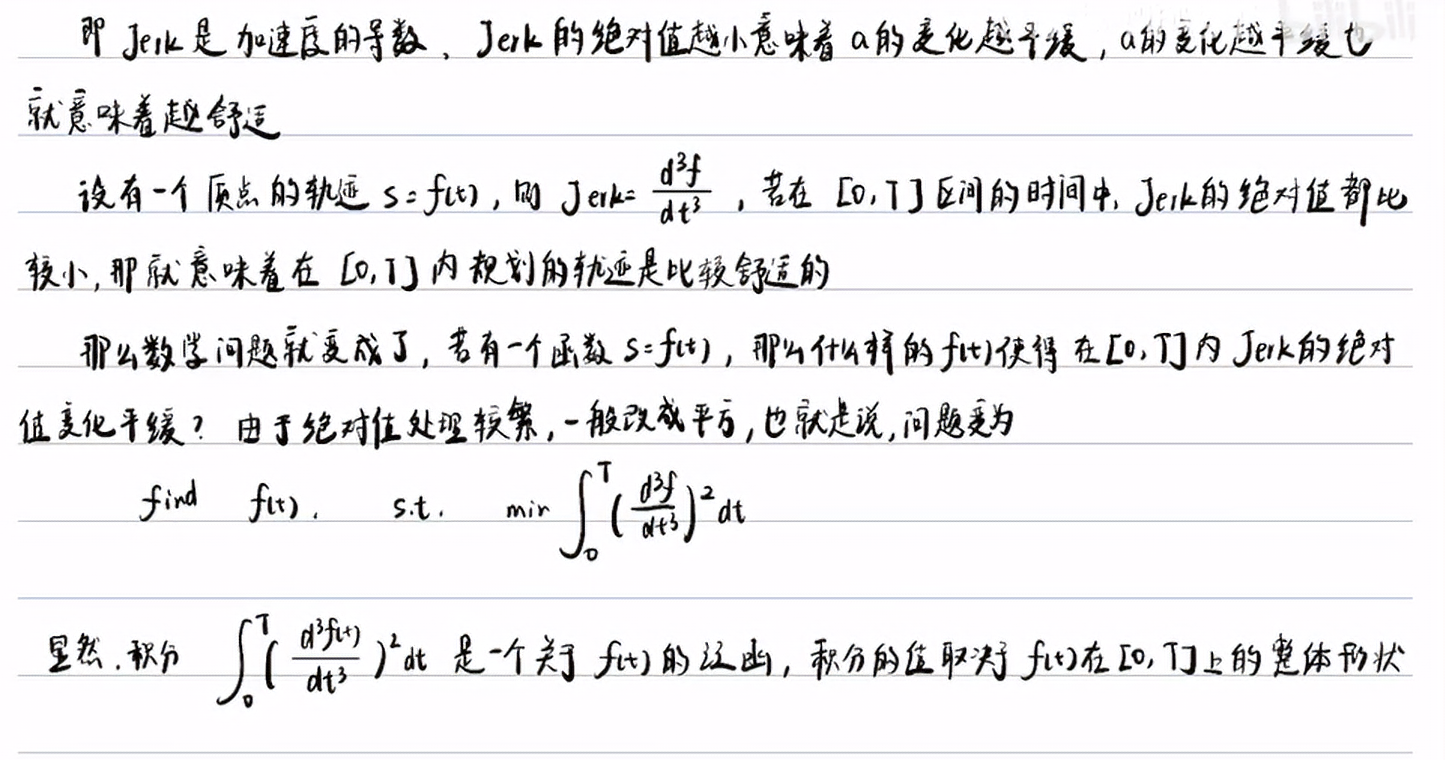 即 Jerk 是加速度的导数、Jerk 的绝对值越小意味着 a 的变化越平缓, a 的变化越平缓也
就意味着越舒适
设有一个质点的轨迹 s=f(t), 则 Jerk= d³f/dt³, 若在 [0,T] 区间的时间中, Jerk 的绝对值都比
较小, 那就意味着在 [0,T] 内规划的轨迹是比较舒适的
那么数学问题就变成了, 若有一个函数 s=f(t), 那么什么样的 f(t) 使得在 [0,T] 内 Jerk 的绝对
值变化平缓? 由于绝对值处理较繁, 一般改成平方, 也就是说, 问题变为
find f(t). s.t. min ∫₀ᵀ (d³f/dt³)² dt
显然, 积分 ∫₀ᵀ (d³f(t)/dt³)² dt 是一个关于 f(t) 的泛函, 积分的值取决于 f(t) 在 [0,T] 上的整体形状
bilibili